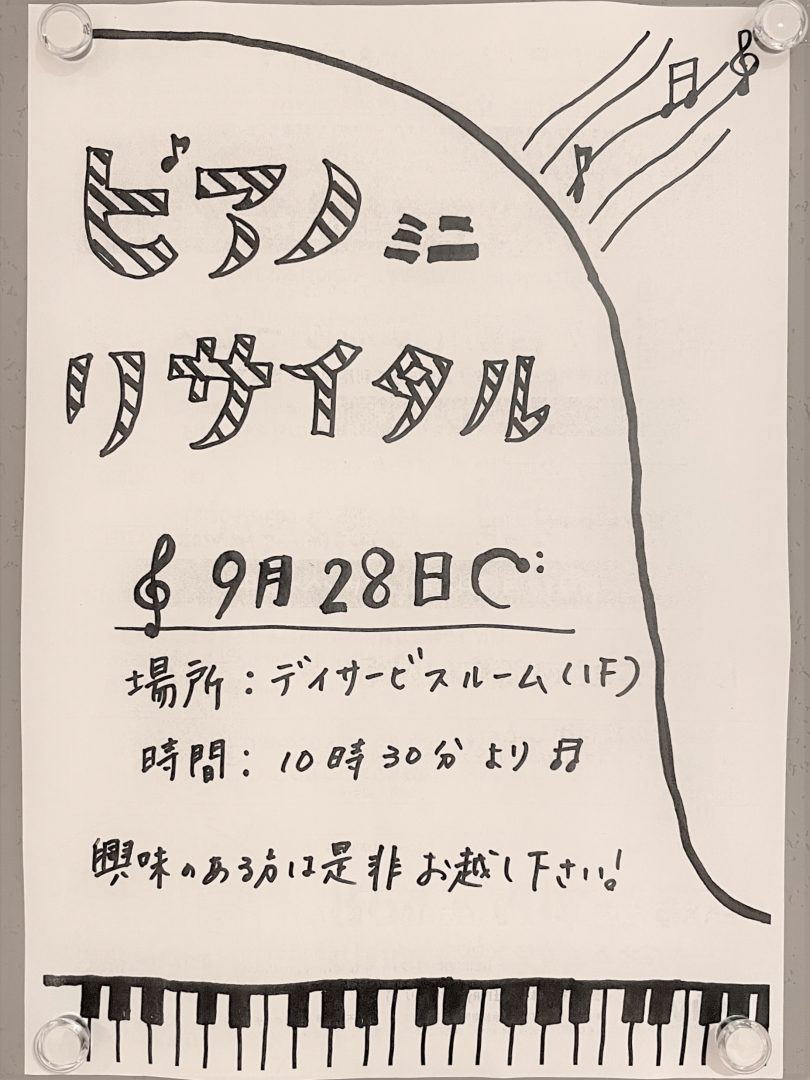 ピアノミニ
リサイタル
9月28日
場所：デイサービスルーム(1F)
時間：10時30分より
興味のある方は是非お越し下さい!